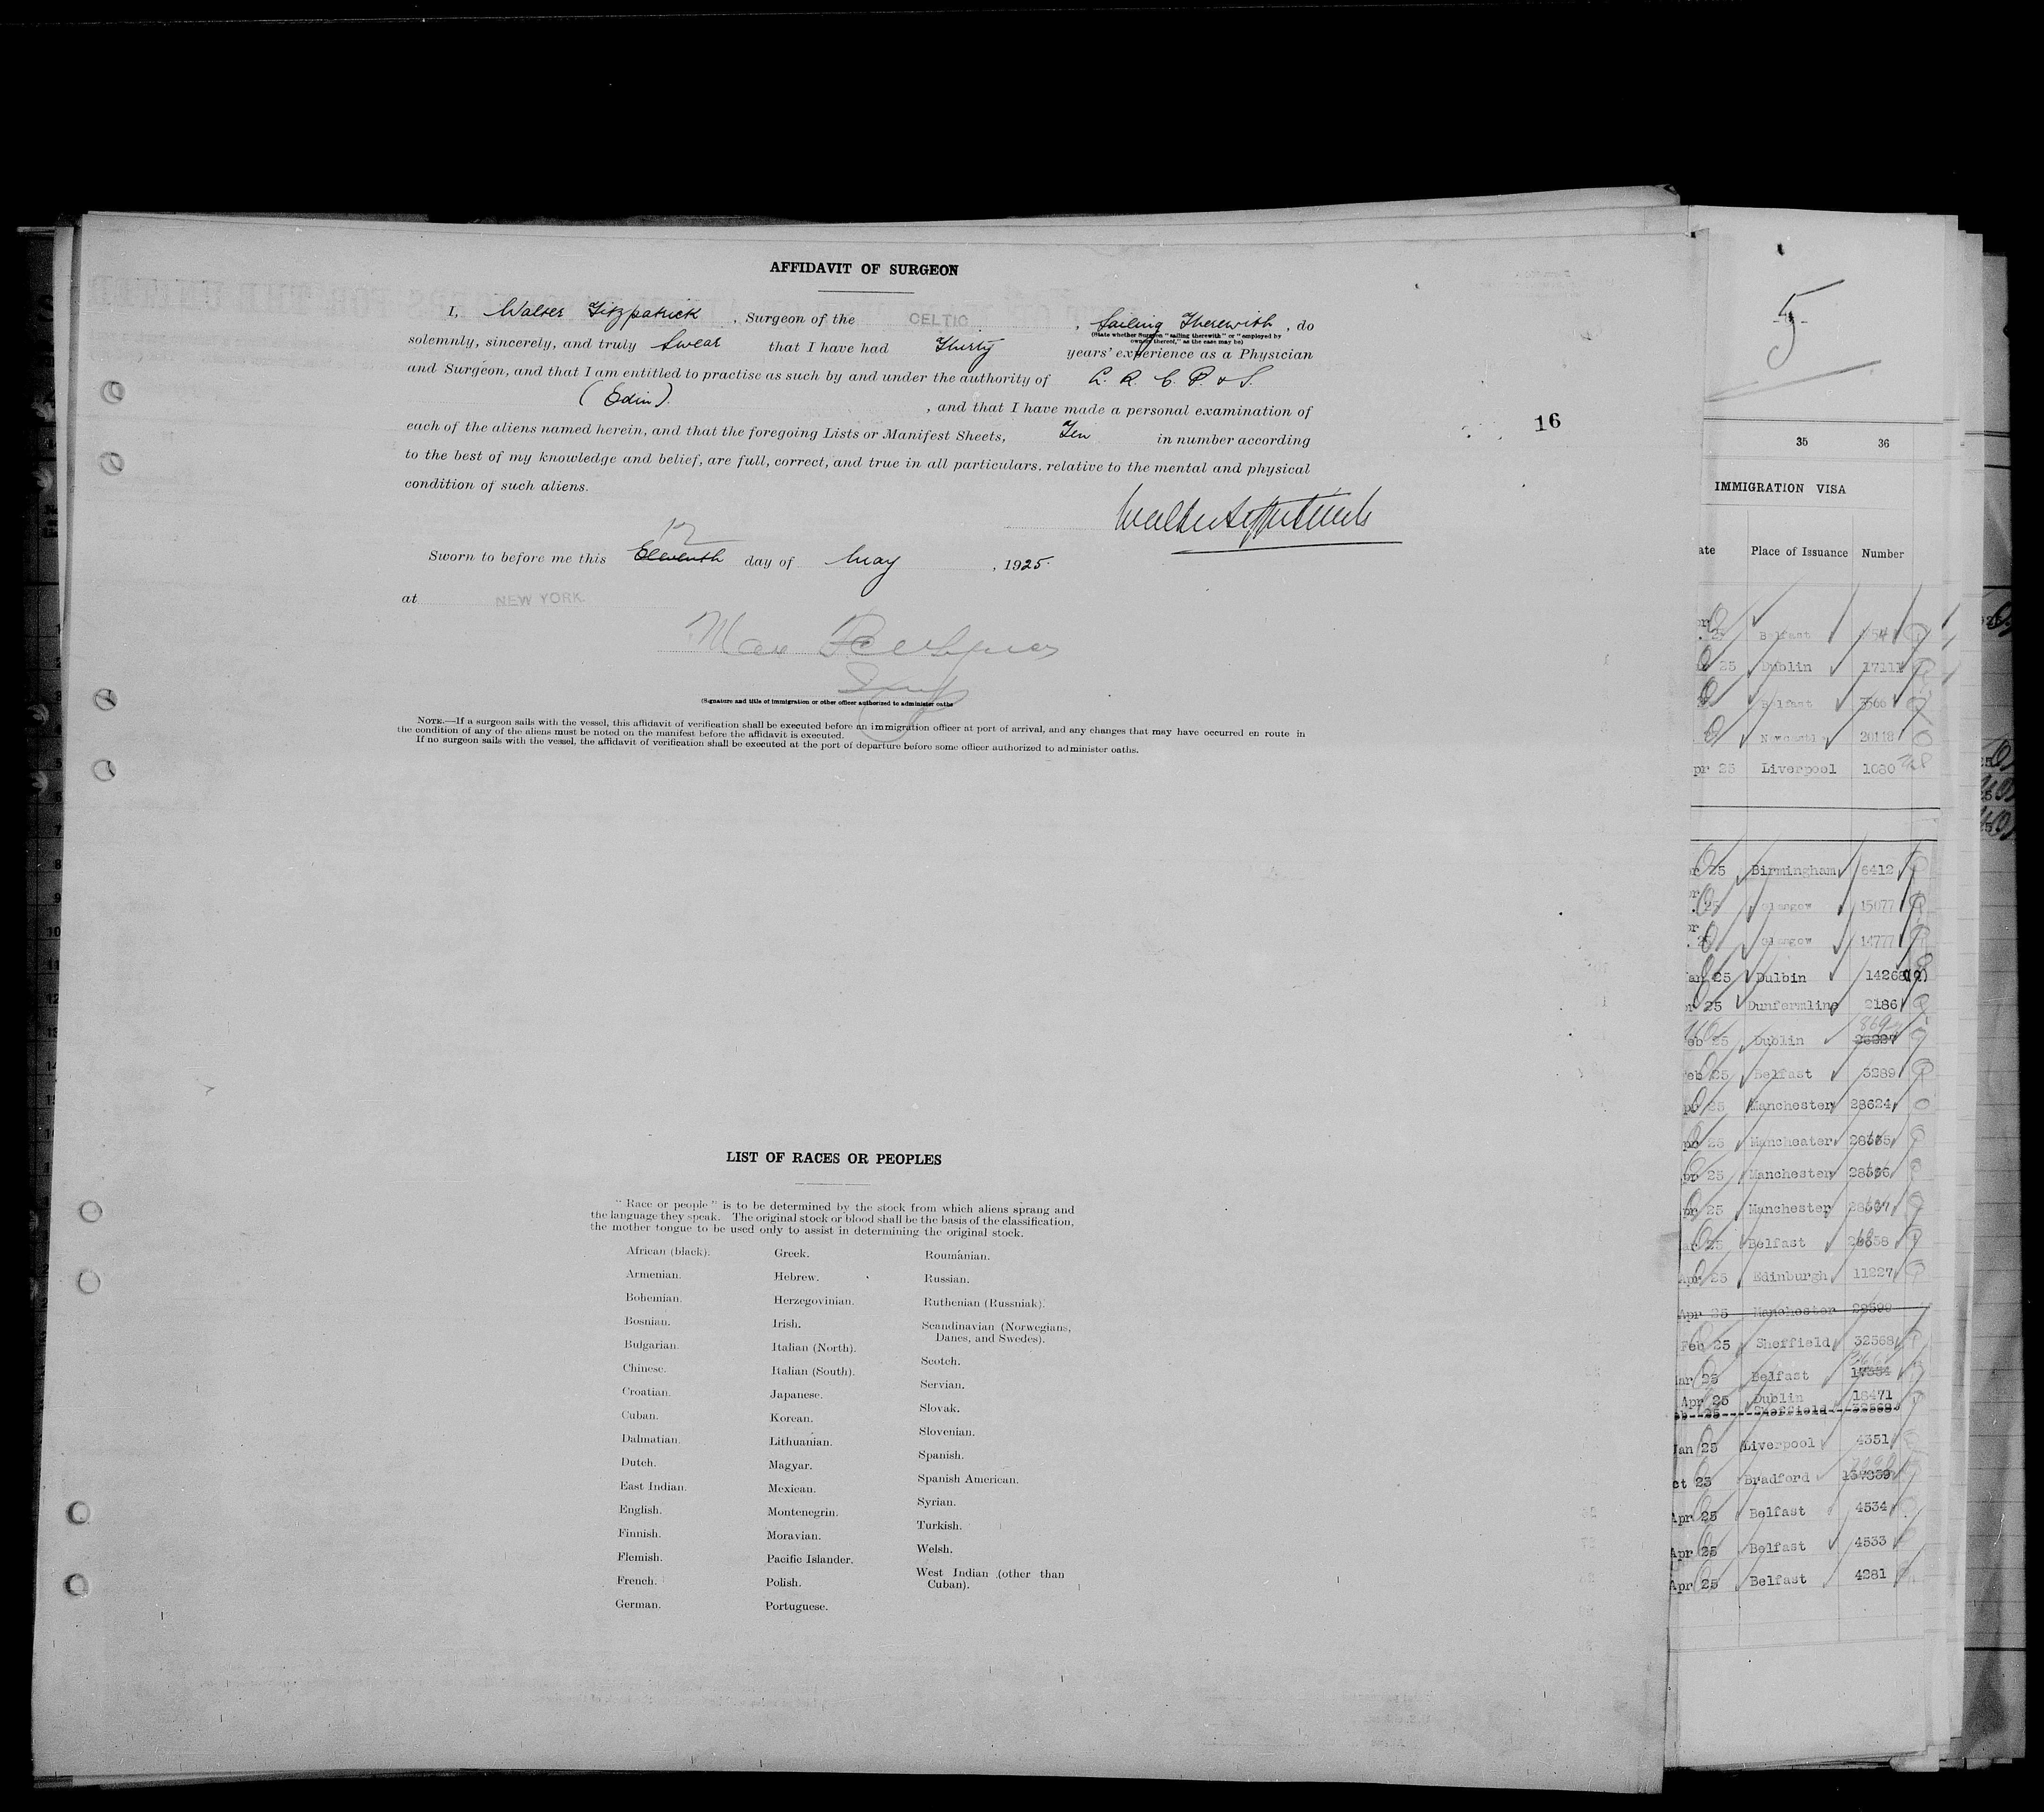 AFFIDAVIT OF SURGEON
I, Walter Fitzpatrick, Surgeon of the CELTIC, Sailing Therewith, do
(State whether Surgeon "sailing therewith" or "employed by
owners thereof," as the case may be)
solemnly, sincerely, and truly Swear that I have had Thirty years' experience as a Physician
and Surgeon, and that I am entitled to practise as such by and under the authority of L. R. C. P. & S.
(Edin). , and that I have made a personal examination of
each of the aliens named herein, and that the foregoing Lists or Manifest Sheets, Ten in number according
to the best of my knowledge and belief, are full, correct, and true in all particulars, relative to the mental and physical
condition of such aliens.
12
Sworn to before me this Eleventh day of May, 1925.
at NEW YORK.
(Signature and title of immigration or other officer authorized to administer oaths
NOTE.—If a surgeon sails with the vessel, this affidavit of verification shall be executed before an immigration officer at port of arrival, and any changes that may have occurred en route in
the condition of any of the aliens must be noted on the manifest before the affidavit is executed.
If no surgeon sails with the vessel, the affidavit of verification shall be executed at the port of departure before some officer authorized to administer oaths.
16
LIST OF RACES OR PEOPLES
"Race or people" is to be determined by the stock from which aliens sprang and
the language they speak. The original stock or blood shall be the basis of the classification,
the mother tongue to be used only to assist in determining the original stock.
African (black).
Armenian.
Bohemian.
Bosnian.
Bulgarian.
Chinese.
Croatian.
Cuban.
Dalmatian.
Dutch.
East Indian.
English.
Finnish.
Flemish.
French.
German.
Greek.
Hebrew.
Herzegovinian.
Irish.
Italian (North).
Italian (South).
Japanese.
Korean.
Lithuanian.
Magyar.
Mexican.
Montenegrin.
Moravian.
Pacific Islander.
Polish.
Portuguese.
Roumanian.
Russian.
Ruthenian (Russniak).
Scandinavian (Norwegians,
Danes, and Swedes).
Scotch.
Servian.
Slovak.
Slovenian.
Spanish.
Spanish American.
Syrian.
Turkish.
Welsh.
West Indian (other than
Cuban).
5
35 36
IMMIGRATION VISA
ate Place of Issuance Number
25 Belfast
25 Dublin 17111
Belfast 3566
Newcastle 20118
pr 25 Liverpool 1080
25 Birmingham 6412
25 Glasgow 15077
25 Glasgow 14777
an 25 Dulbin 14268
25 Dunfermline 2186
869
eb 25 Dublin 26227
eb 25 Belfast 3289
pr 25 Manchester 28624
pr 25 Mancheater
pr 25 Manchester
pr 25 Manchester
ar 25 Belfast
Apr 25 Edinburgh 11227
Apr 25 Manchester 28599
Feb 25 Sheffield 32568
ar 25 Belfast
Apr 25 Dublin 18471
eb 25 Sheffield 32568
Jan 25 Liverpool 4351
ct 23 Bradford
Apr 25 Belfast 4534
Apr 25 Belfast 4533
Apr 25 Belfast 4281